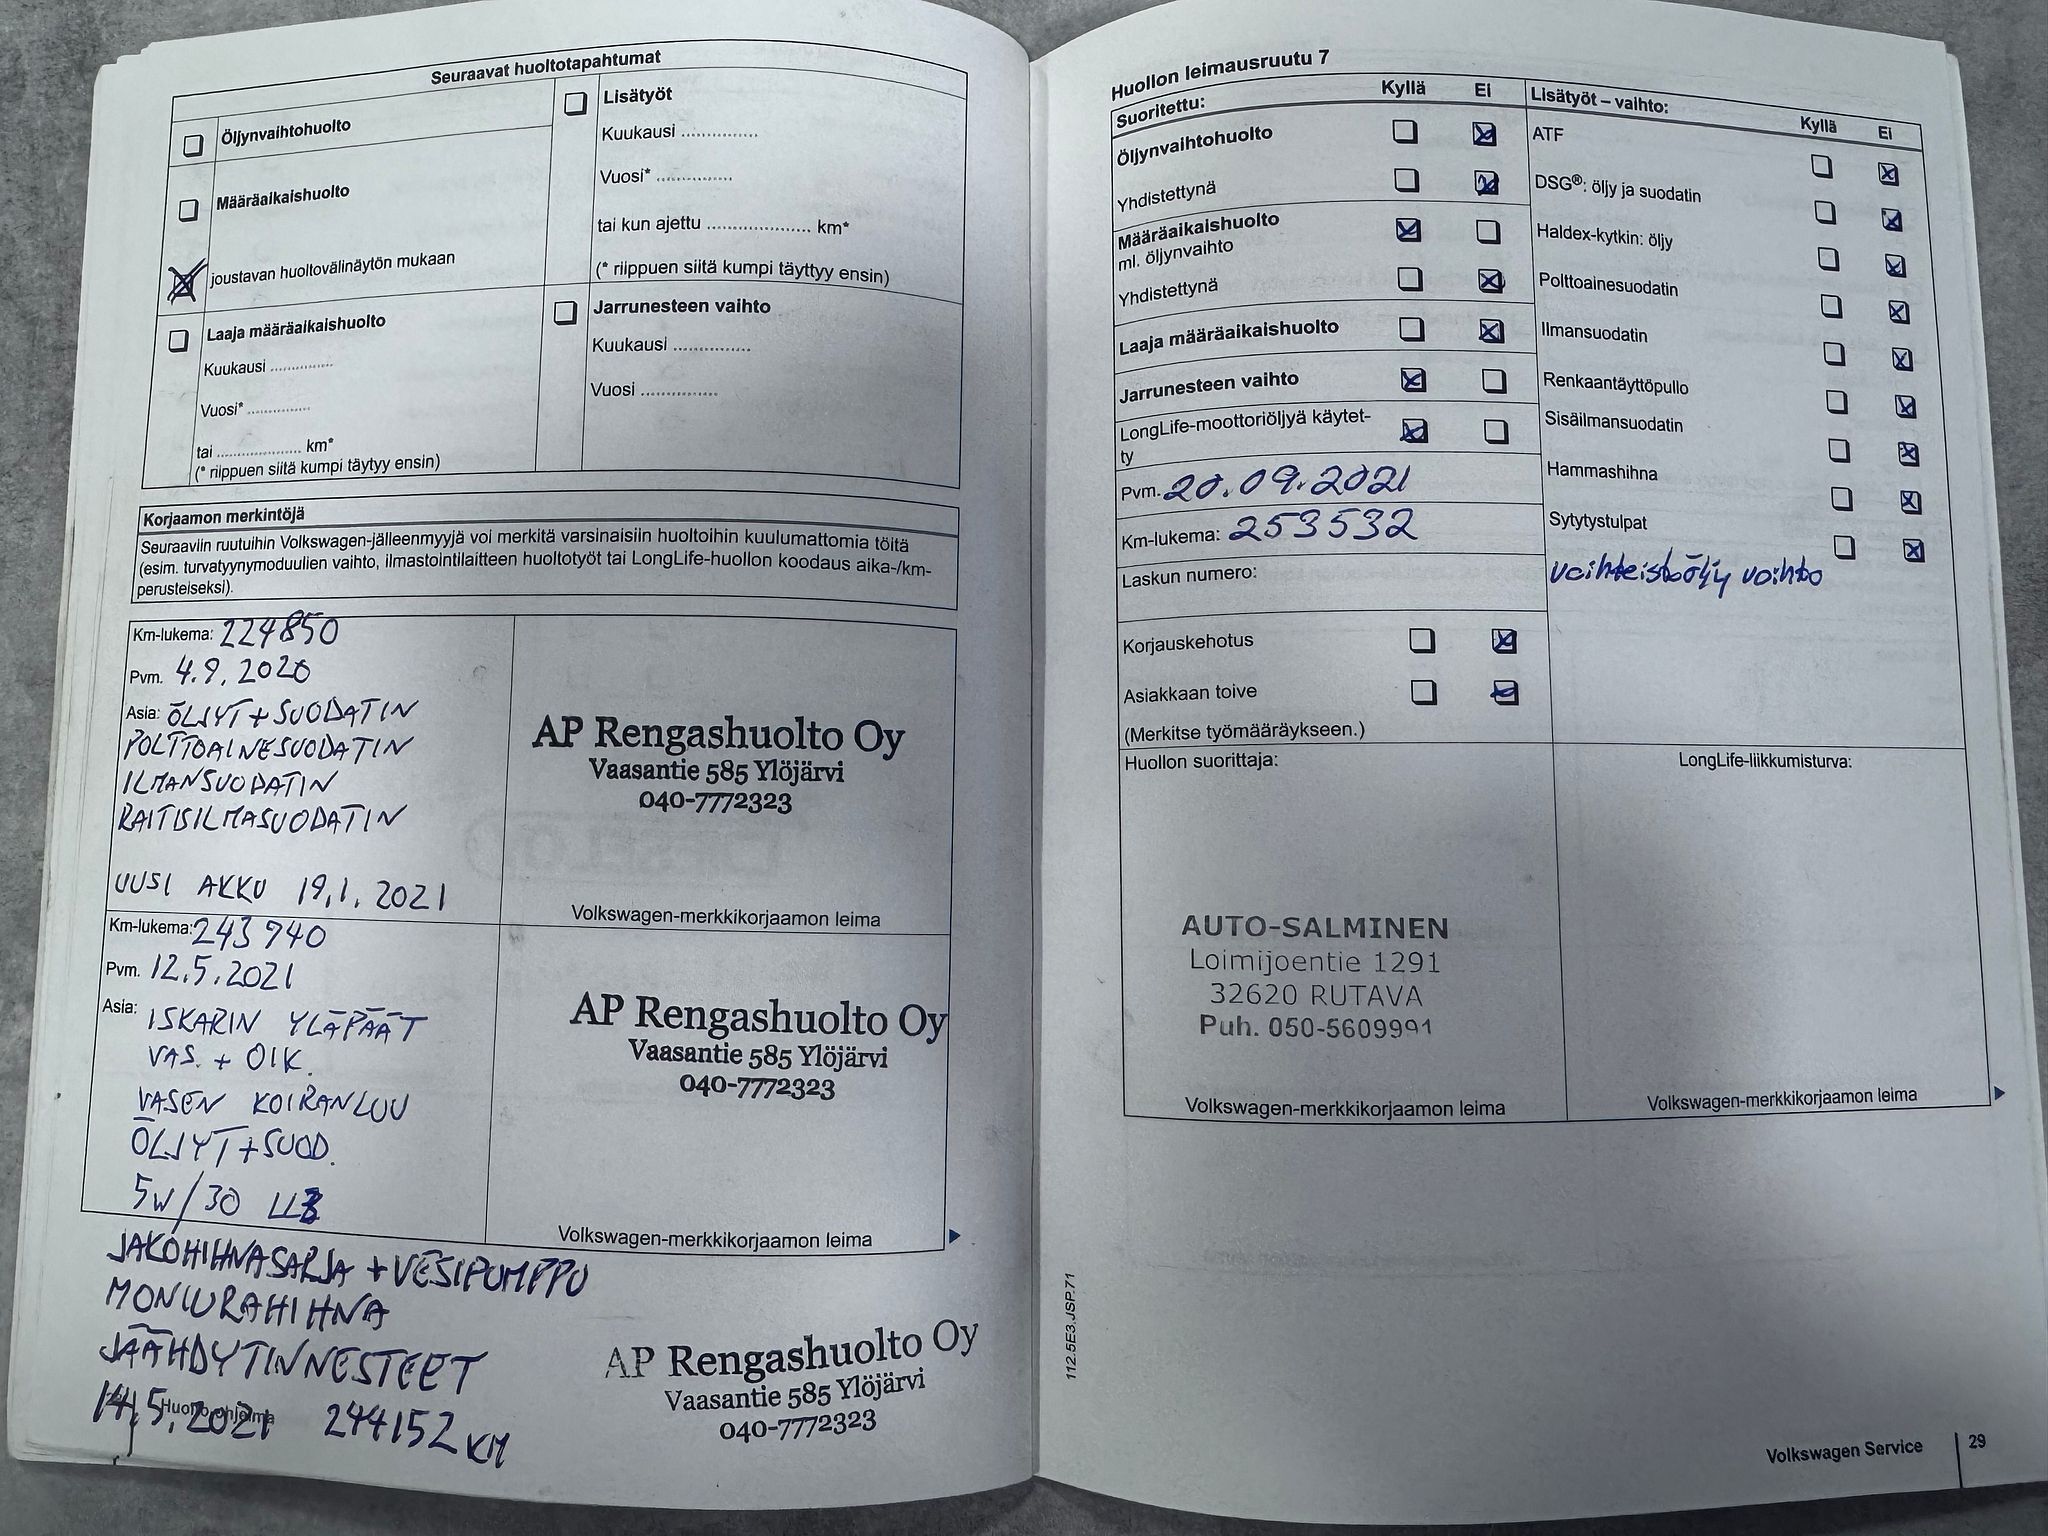 Seuraavat huoltotapahtumat
Öljynvaihtohuolto
Määräaikaishuolto
joustavan huoltovälinäytön mukaan
Laaja määräaikaishuolto
Kuukausi ................
Vuosi* ................
tai .................... km*
(* riippuen siitä kumpi täytyy ensin)
Lisätyöt
Kuukasi ...................
Vuosi* ...................
tai kun ajettu ......................... km*
(* riippuen siitä kumpi täyttyy ensin)
Jarrunesteen vaihto
Kuukausi ...................
Vuosi ...................
Korjaamon merkintöjä
Seuraaviin ruutuihin Volkswagen-jälleenmyyjä voi merkitä varsinaisiin huoltoihin kuulumattomia töitä
(esim. turvatyynymoduulien vaihto, ilmastointilaitteen huoltotyöt tai LongLife-huollon koodaus aika-/km-
perusteiseksi).
Km-lukema: 224850
Pvm. 4.9.2020
Asia: ÖLJYT + SUODATIN
POLTTOAINESUODATIN
ILMANSUODATIN
RAITISILMASUODATIN
UUSI AKKU 19.1.2021
AP Rengashuolto Oy
Vaasantie 585 Ylöjärvi
040-7772323
Volkswagen-merkkikorjaamon leima
Km-lukema: 243940
Pvm. 12.5.2021
Asia: ISKARIN YLÄPÄÄT
VAS. + OIK.
VASEN KOIRANLUU
ÖLJYT + SUOD.
5W/30 LL3
AP Rengashuolto Oy
Vaasantie 585 Ylöjärvi
040-7772323
Volkswagen-merkkikorjaamon leima
JAKOHIHNASARJA + VESIPUMPPU
MONIURAHIHNA
JÄÄHDYTINNESTEET
14.5.2021 244152 KM
Huolto-ohjelma
AP Rengashuolto Oy
Vaasantie 585 Ylöjärvi
040-7772323
Huollon leimausruutu 7
Suoritettu: Kyllä Ei
Öljynvaihtohuolto
Yhdistettynä
Määräaikaishuolto
ml. öljynvaihto
Yhdistettynä
Laaja määräaikaishuolto
Jarrunesteen vaihto
LongLife-moottoriöljyä käytet-
ty
Pvm. 20.09.2021
Km-lukema: 253532
Laskun numero:
Korjauskehotus
Asiakkaan toive
(Merkitse työmääräykseen.)
Lisätyöt – vaihto: Kyllä Ei
ATF
DSG®: öljy ja suodatin
Haldex-kytkin: öljy
Polttoainesuodatin
Ilmansuodatin
Renkaantäyttöpullo
Sisäilmansuodatin
Hammashihna
Sytytystulpat
vaihteistoöljy vaihto
Huollon suorittaja:
AUTO-SALMINEN
Loimijoentie 1291
32620 RUTAVA
Puh. 050-5609991
Volkswagen-merkkikorjaamon leima
LongLife-liikkumisturva:
Volkswagen-merkkikorjaamon leima
112.5E3.JSP.71
Volkswagen Service 29